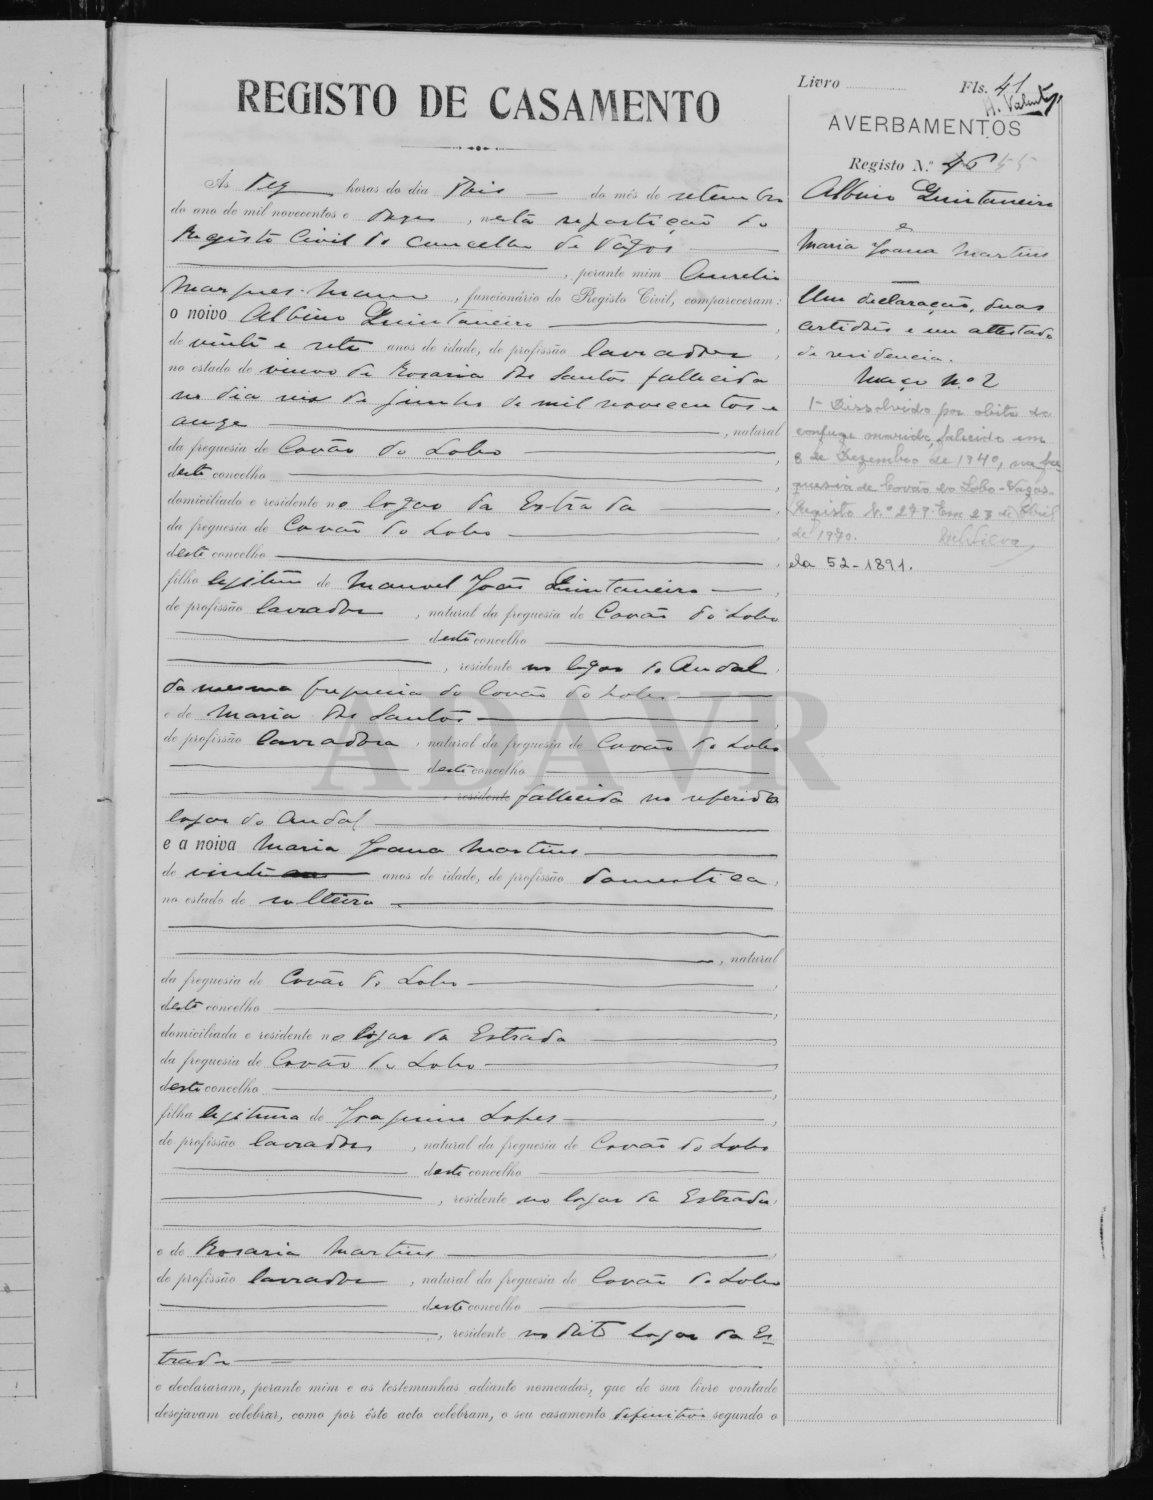 REGISTO DE CASAMENTO
Às dez horas do dia dois do mês de setembro
do ano de mil novecentos e doze, nesta repartição do
Registo Civil do concelho de Vagos
, perante mim Aurelio
Marques Mano, funcionário do Registo Civil, compareceram:
o noivo Albino Quintaneiro,
de vinte e sete anos de idade, de profissão lavrador,
no estado de viuvo de Rosaria dos Santos fallecida
no dia de junho de mil novecentos e
onze, natural
da freguesia de Covão do Lobo,
deste concelho,
domiciliado e residente no logar da Estrada,
da freguesia de Covão do Lobo,
deste concelho,
filho legitimo de Manuel João Quintaneiro,
de profissão lavrador, natural da freguesia de Covão do Lobo
deste concelho
, residente no logar do Andal
da mesma freguesia do Covão do Lobo
e de Maria dos Santos,
de profissão lavradora, natural da freguesia de Covão do Lobo
deste concelho
, residente fallecida no referido
logar do Andal
e a noiva Maria Joana Martins
de vinte anos de idade, de profissão domestica,
no estado de solteira
, natural
da freguesia de Covão do Lobo,
deste concelho,
domiciliada e residente no logar da Estrada,
da freguesia de Covão do Lobo,
deste concelho,
filha legitima de Joaquim Lopes,
de profissão lavrador, natural da freguesia de Covão do Lobo
deste concelho
, residente no logar da Estrada,
e de Rosaria Martins,
de profissão lavradora, natural da freguesia de Covão do Lobo
deste concelho
, residente no dito logar da Es-
trada
e declararam, perante mim e as testemunhas adiante nomeadas, que de sua livre vontade
desejavam celebrar, como por êste acto celebram, o seu casamento definitivo segundo o
Livro Fls. 41
A. Valente
AVERBAMENTOS
Registo N.º 46 45
Albino Quintaneiro
e
Maria Joana Martins
Uma declaração, duas
certidões e um attestado
de residencia.
Maço nº 2
1- Dissolvido por obito do
conjuge marido, falecido em
8 de Dezembro de 1940, na fre-
guesia de Covão do Lobo-Vagos.
Registo N.º 279. Em 23 de Abril
de 1970.
ela 52-1891.
ADAVR